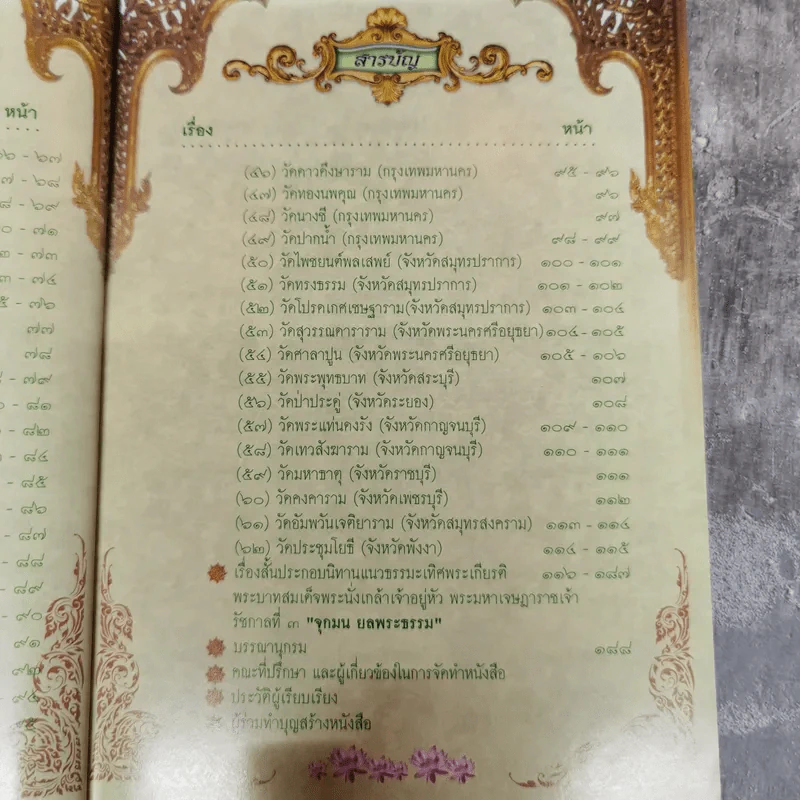 หน้า
๖๖ - ๖๗
๗ - ๖๘
๘ - ๖๙
๐ - ๗๑
๒ - ๗๓
๓ - ๗๔
๕ - ๗๖
๗๗
๗๘
- ๗๙
- ๘๑
- ๘๒
- ๘๔
- ๘๕
- ๘๖
- ๘๗
- ๘๘
- ๘๙
- ๙๐
๙๑
๙๒
สารบัญ
เรื่อง หน้า
(๔๖) วัดดาวดึงษาราม (กรุงเทพมหานคร) ๙๕ - ๙๖
(๔๗) วัดทองนพคุณ (กรุงเทพมหานคร) ๙๖
(๔๘) วัดนางชี (กรุงเทพมหานคร) ๙๗
(๔๙) วัดปากน้ำ (กรุงเทพมหานคร) ๙๘ - ๙๙
(๕๐) วัดไพชยนต์พลเสพย์ (จังหวัดสมุทรปราการ) ๑๐๐ - ๑๐๑
(๕๑) วัดทรงธรรม (จังหวัดสมุทรปราการ) ๑๐๑ - ๑๐๒
(๕๒) วัดโปรดเกศเชษฐาราม(จังหวัดสมุทรปราการ) ๑๐๓ - ๑๐๔
(๕๓) วัดสุวรรณดาราราม (จังหวัดพระนครศรีอยุธยา) ๑๐๔ - ๑๐๕
(๕๔) วัดศาลาปูน (จังหวัดพระนครศรีอยุธยา) ๑๐๕ - ๑๐๖
(๕๕) วัดพระพุทธบาท (จังหวัดสระบุรี) ๑๐๗
(๕๖) วัดป่าประดู่ (จังหวัดระยอง) ๑๐๘
(๕๗) วัดพระแท่นดงรัง (จังหวัดกาญจนบุรี) ๑๐๙ - ๑๑๐
(๕๘) วัดเทวสังฆาราม (จังหวัดกาญจนบุรี) ๑๑๐ - ๑๑๑
(๕๙) วัดมหาธาตุ (จังหวัดราชบุรี) ๑๑๑
(๖๐) วัดคงคาราม (จังหวัดเพชรบุรี) ๑๑๒
(๖๑) วัดอัมพวันเจติยาราม (จังหวัดสมุทรสงคราม) ๑๑๓ - ๑๑๔
(๖๒) วัดประชุมโยธี (จังหวัดพังงา) ๑๑๔ - ๑๑๕
เรื่องสั้นประกอบนิทานแนวธรรมะเทิศพระเกียรติ ๑๑๖ - ๑๘๗
พระบาทสมเด็จพระนั่งเกล้าเจ้าอยู่หัว พระมหาเจษฎาราชเจ้า
รัชกาลที่ ๓ "จุกมน ยลพระธรรม"
บรรณานุกรม ๑๘๘
คณะที่ปรึกษา และผู้เกี่ยวข้องในการจัดทำหนังสือ
ประวัติผู้เรียบเรียง
ผู้ร่วมทำบุญสร้างหนังสือ